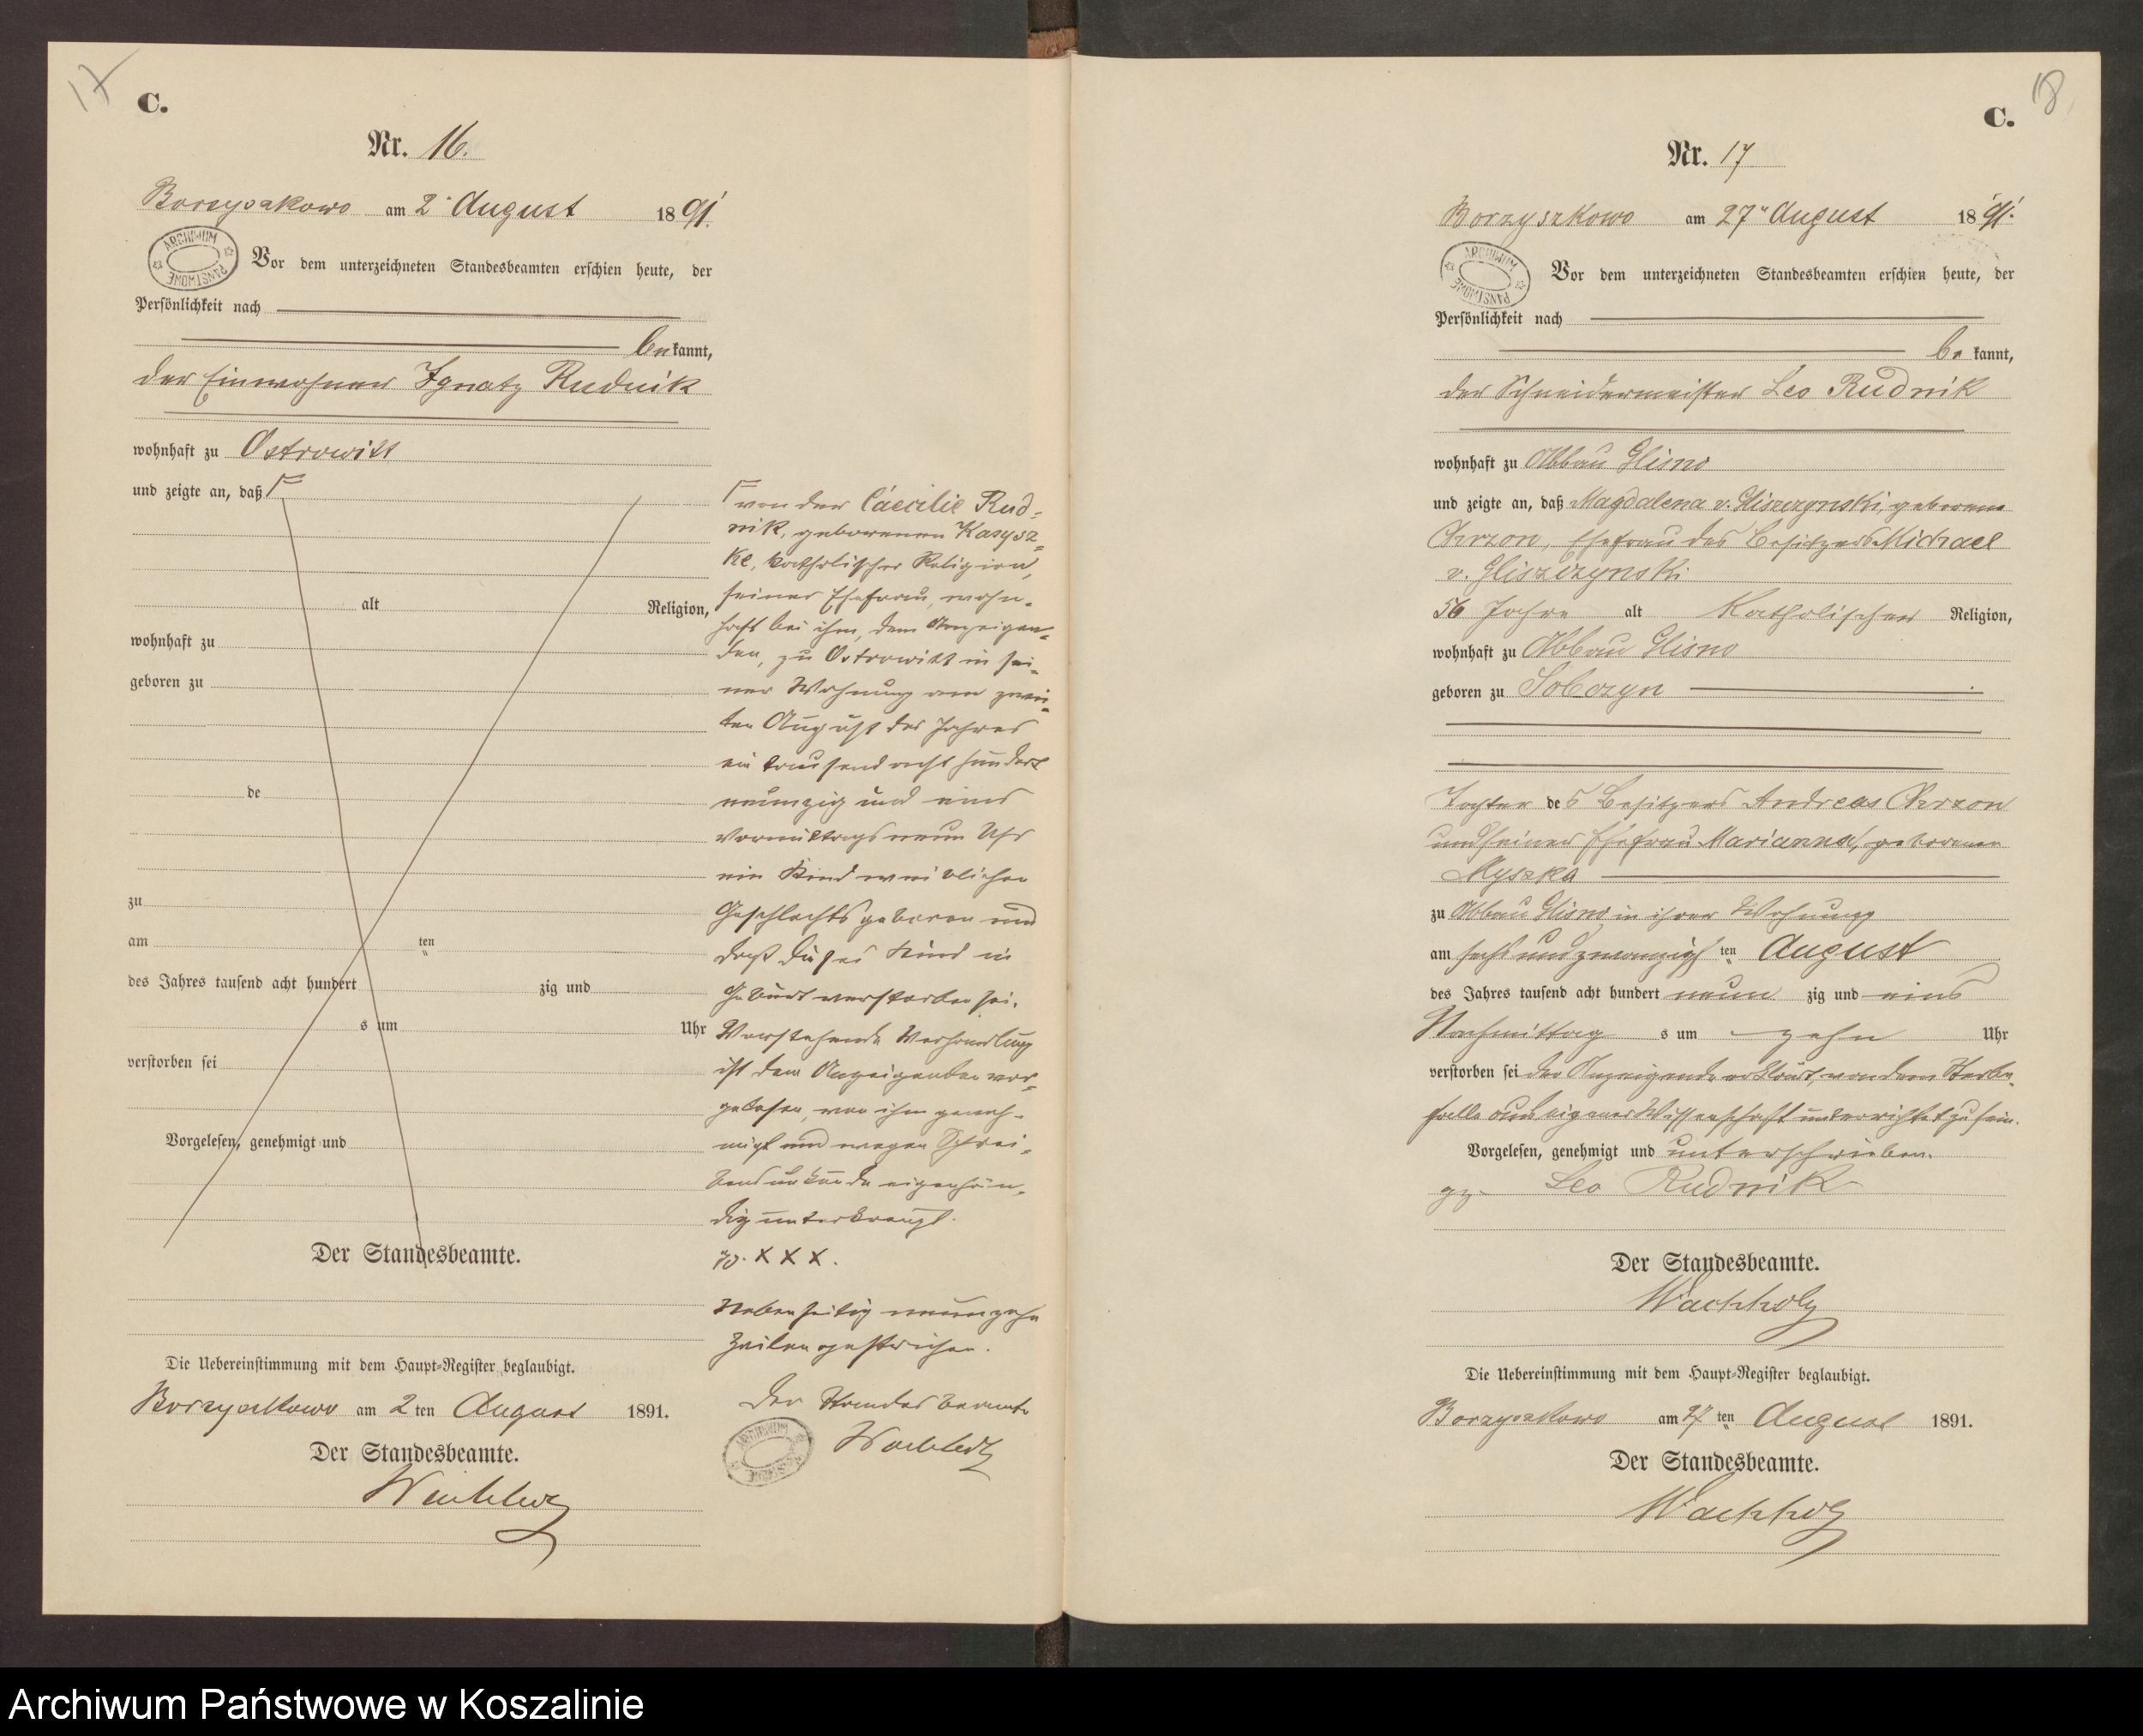 17
C.
Nr. 16.
Borzyszkowo am 2. August 1891.
ARCHIWUM PAŃSTWOWE
Vor dem unterzeichneten Standesbeamten erschien heute, der
Persönlichkeit nach
bekannt,
der Einwohner Ignatz Rudnik
wohnhaft zu Ostrowitt
und zeigte an, daß Γ
alt Religion,
wohnhaft zu
geboren zu
de
zu
am ten
des Jahres tausend acht hundert zig und
s um Uhr
verstorben sei
Vorgelesen, genehmigt und
Der Standesbeamte.
Die Uebereinstimmung mit dem Haupt-Register beglaubigt.
Borzyszkowo am 2 ten August 1891.
Der Standesbeamte.
Wachholz
Γ von der Cäcilie Rud-
nik, geborenen Kasysz-
ke, katholischer Religion,
seiner Ehefrau, wohn-
haft bei ihm, dem Anzeigen-
den, zu Ostrowitt in sei-
ner Wohnung am zwei-
ten August des Jahres
ein tausend acht hundert
neunzig und eins
Vormittags neun Uhr
ein Kind weiblichen
Geschlechts geboren und
daß dieses Kind in
Geburt verstorben sei.
Vorstehende Verhandlung
ist dem Anzeigenden vor-
gelesen, von ihm geneh-
migt und wegen Schrei-
bensunkunde eigenhän-
dig unterkreuzt.
gz. X X X.
Nebenseitig neunzehn
Zeilen gestrichen.
Der Standesbeamte
Wachholz
ARCHIWUM PAŃSTWOWE
18
C.
Nr. 17
Borzyszkowo am 27" August 1891.
ARCHIWUM PAŃSTWOWE
Vor dem unterzeichneten Standesbeamten erschien heute, der
Persönlichkeit nach
be kannt,
der Schneidermeister Leo Rudnik
wohnhaft zu Abbau Glisno
und zeigte an, daß Magdalena v. Gliszczynski, geborene
Chrzon, Ehefrau des Besitzers Michael
v. Gliszczynski
56 Jahre alt Katholischer Religion,
wohnhaft zu Abbau Glisno
geboren zu Sobczyn
Tochter des Besitzers Andreas Chrzon
und seiner Ehefrau Marianna, geborenen
Myszka
zu Abbau Glisno in ihrer Wohnung
am sechsundzwanzigsten August
des Jahres tausend acht hundert neun zig und eins
Nachmittag s um zehn Uhr
verstorben sei der Anzeigende erklärt, von dem Sterbe-
falle aus eigener Wissenschaft unterrichtet zu sein.
Vorgelesen, genehmigt und unterschrieben.
gz. Leo Rudnik
Der Standesbeamte.
Wachholz
Die Uebereinstimmung mit dem Haupt-Register beglaubigt.
Borzyszkowo am 27 ten August 1891.
Der Standesbeamte.
Wachholz
Archiwum Państwowe w Koszalinie